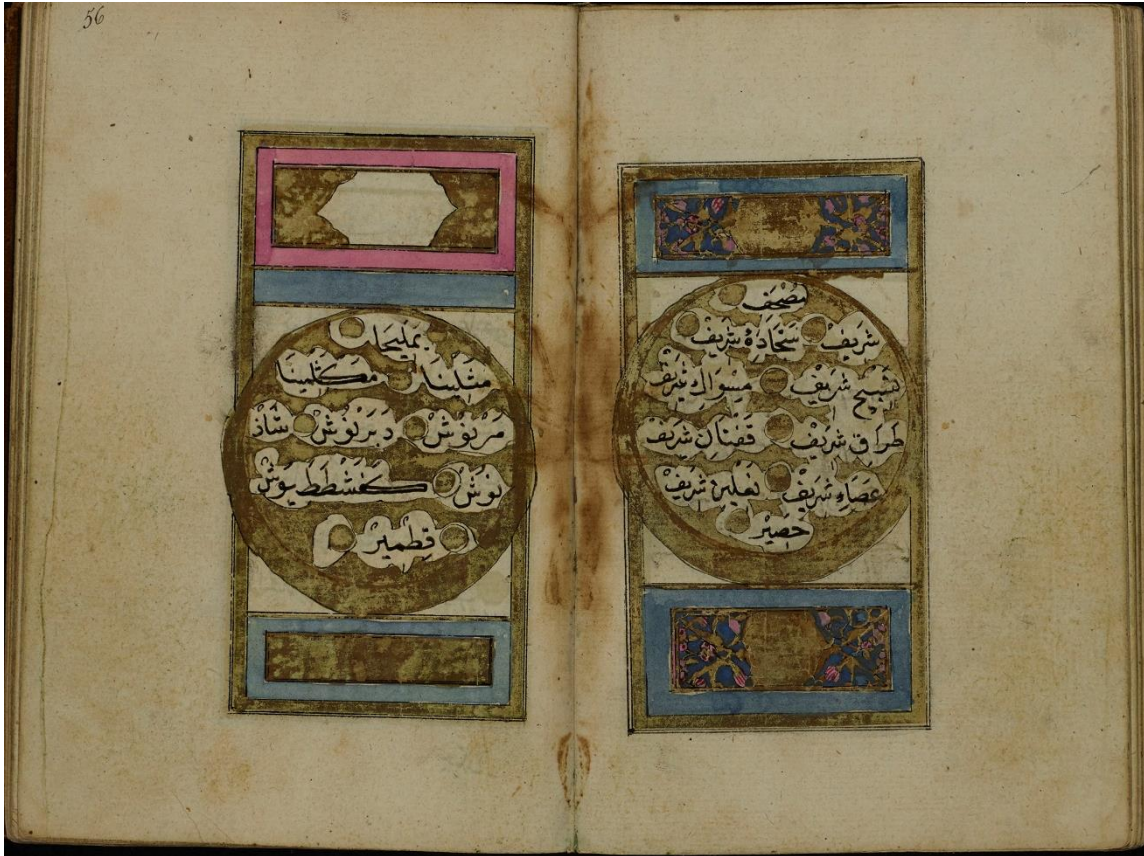 مُصْحَف
شريف سَجَّادَهٔ شريف
تسبيح شريف مسواك شريف
طراق شريف قفتان شريف
عصاء شريف نعلين شريف
حصير
يمليخا
مثلينا مكثلينا
مرنوش دبرنوش شاذ
نوش كفشططيوش
قطمير
56